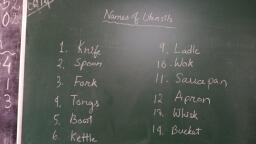 Names of Utensils
1. Knife
2. Spoon
3. Fork
4. Tongs
5. Bowl
6. Kettle
9. Ladle
10. Wok
11. Saucepan
12 Apron
13. Whisk
14. Bucket
4
1
3